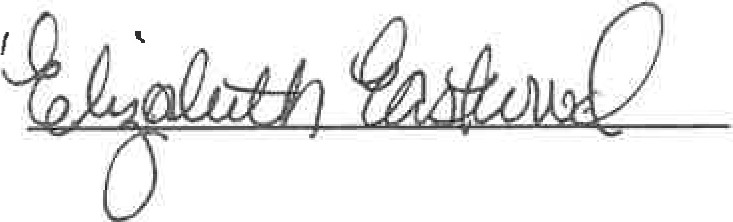 Elizabeth Eastwood